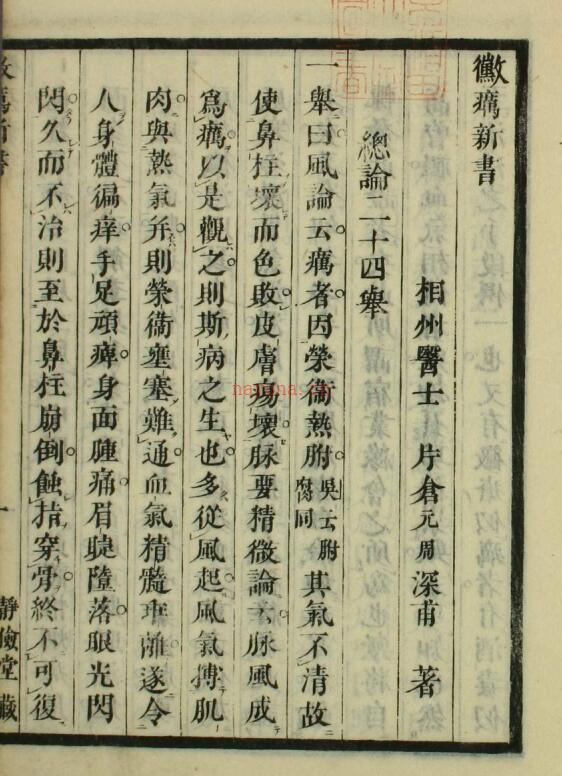 黴癘新書
相州醫士 片倉元周深甫 著
總論二十四舉
一舉曰風論云癘者因榮衞熱胕吳云胕腐同其氣不清故
使鼻柱壞而色敗皮膚瘍壞脉要精微論云脉風成
爲癘以是觀之則斯病之生也多從風起風氣搏肌
肉與熱氣并則榮衞壅塞難通血氣精髓乖離遂令
人身體徧痒手足頑痺身面腫痛眉睫墮落眼光閃
閃久而不治則至於鼻柱崩倒蝕指穿骨終不可復
一 靜儉堂藏